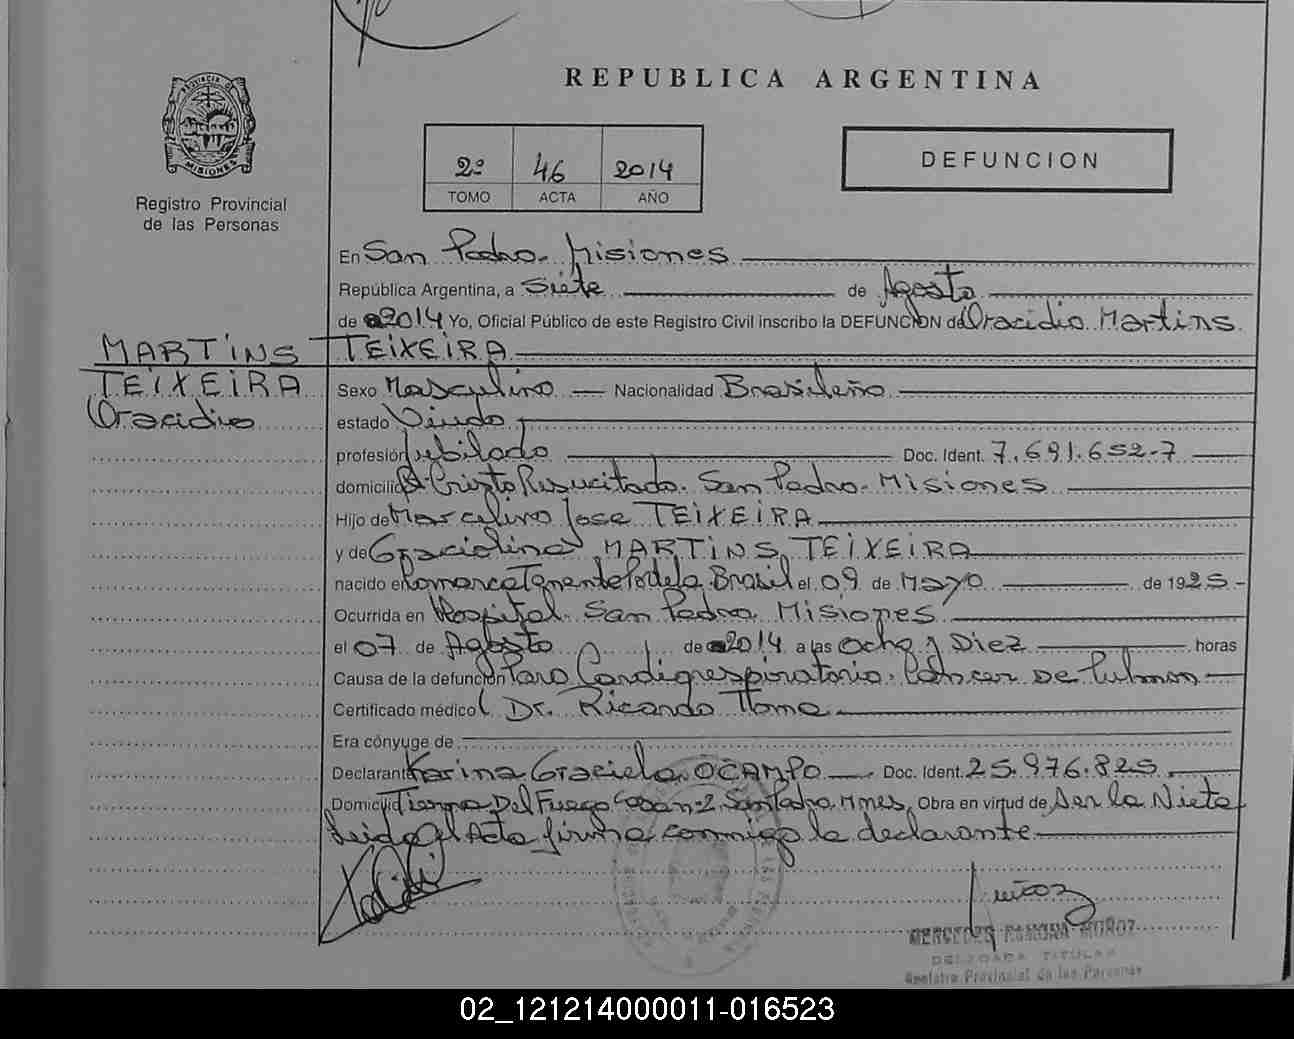 REPUBLICA ARGENTINA
PROVINCIA DE MISIONES
Registro Provincial
de las Personas
2º 46 2014
TOMO ACTA AÑO
DEFUNCION
En San Pedro- Misiones
República Argentina, a Siete de Agosto
de 2014 Yo, Oficial Público de este Registro Civil inscribo la DEFUNCION de Oracidio Martins
TEIXEIRA
MARTINS
TEIXEIRA
Oracidio
Sexo Masculino Nacionalidad Brasileño
estado Viudo
profesión Jubilado Doc. Ident. 7.691.652-7
domicilio Bº Cristo Resucitado. San Pedro- Misiones
Hijo de Marcelino Jose TEIXEIRA
y de Graciolina MARTINS TEIXEIRA
nacido en Brasil el 09 de Mayo de 1925-
Ocurrida en Hospital San Pedro Misiones
el 07 de Agosto de 2014 a las Ocho y Diez horas
Causa de la defunción Paro Cardiorrespiratorio. Cáncer De Pulmon
Certificado médico Dr. Ricardo
Era cónyuge de
Declarante Karina Graciela OCAMPO Doc. Ident. 25.976.825
Domicilio Tierra Del Fuego San Pedro Mnes. Obra en virtud de Ser la Nieta
Leida el Acta firma conmigo la declarante
Muñoz
MERCEDES RAMONA MUÑOZ
DELEGADA TITULAR
Registro Provincial de las Personas
02_121214000011-016523